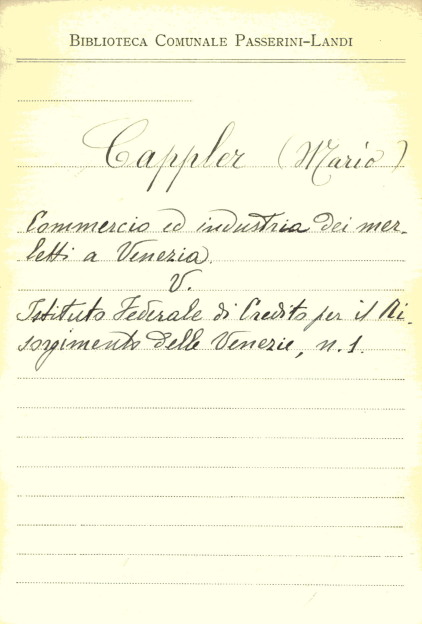 BIBLIOTECA COMUNALE PASSERINI-LANDI
Cappler (Mario)
Commercio ed industria dei mer-
letti a Venezia.
V.
Istituto Federale di Credito per il Ri-
sorgimento delle Venezie, n. 1.